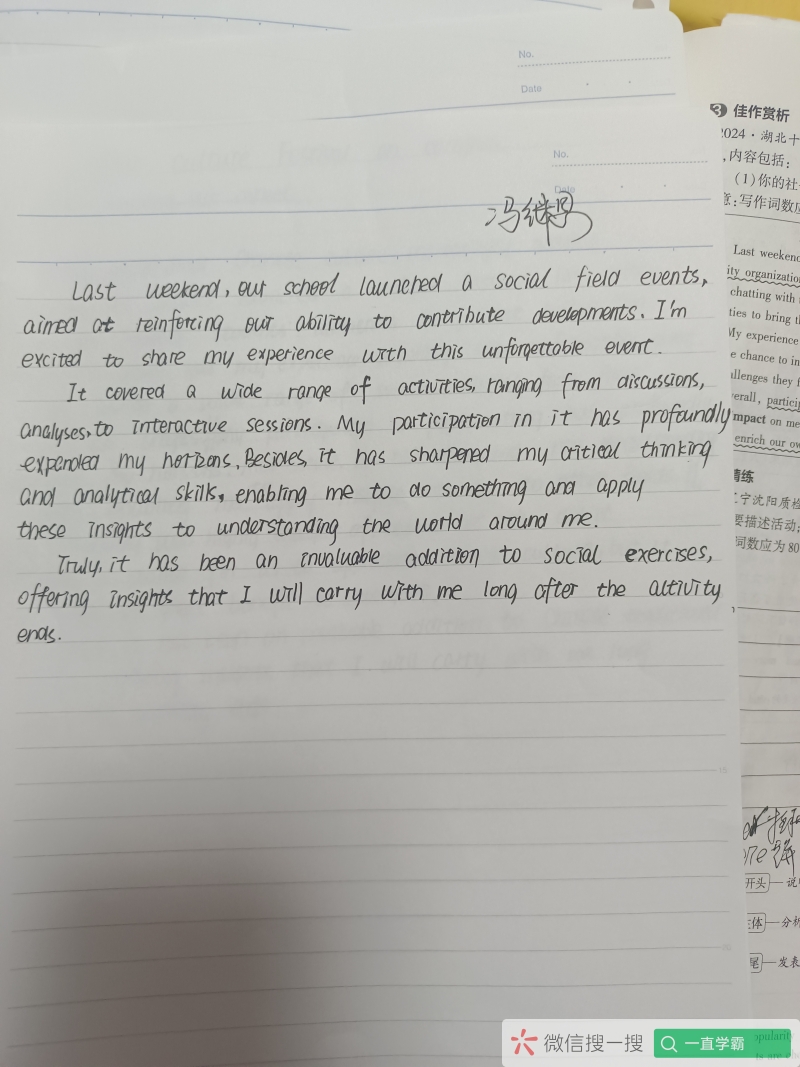 No.
Date
No.
Date
冯继
Last weekend, our school launched a social field events,
aimed at reinforcing our ability to contribute developments. I'm
excited to share my experience with this unforgettable event.
It covered a wide range of activities, ranging from discussions,
analyses, to interactive sessions. My participation in it has profoundly
expanded my horizons, Besides, it has sharpened my critical thinking
and analytical skills, enabling me to do something and apply
these insights to understanding the world around me.
Truly, it has been an invaluable addition to social exercises,
offering insights that I will carry with me long after the activity
ends.
3 佳作赏析
2024·湖北十
,内容包括:
(1)你的社
意:写作词数应
Last weekend
ity organization
chatting with
ties to bring th
My experience
e chance to in
allenges they f
verall, particip
impact on me
enrich our ow
精练
辽宁沈阳质检
要描述活动;
词数应为80
开头 — 说
主体 — 分析
尾 — 发表
微信搜一搜
一直学霸
opularity